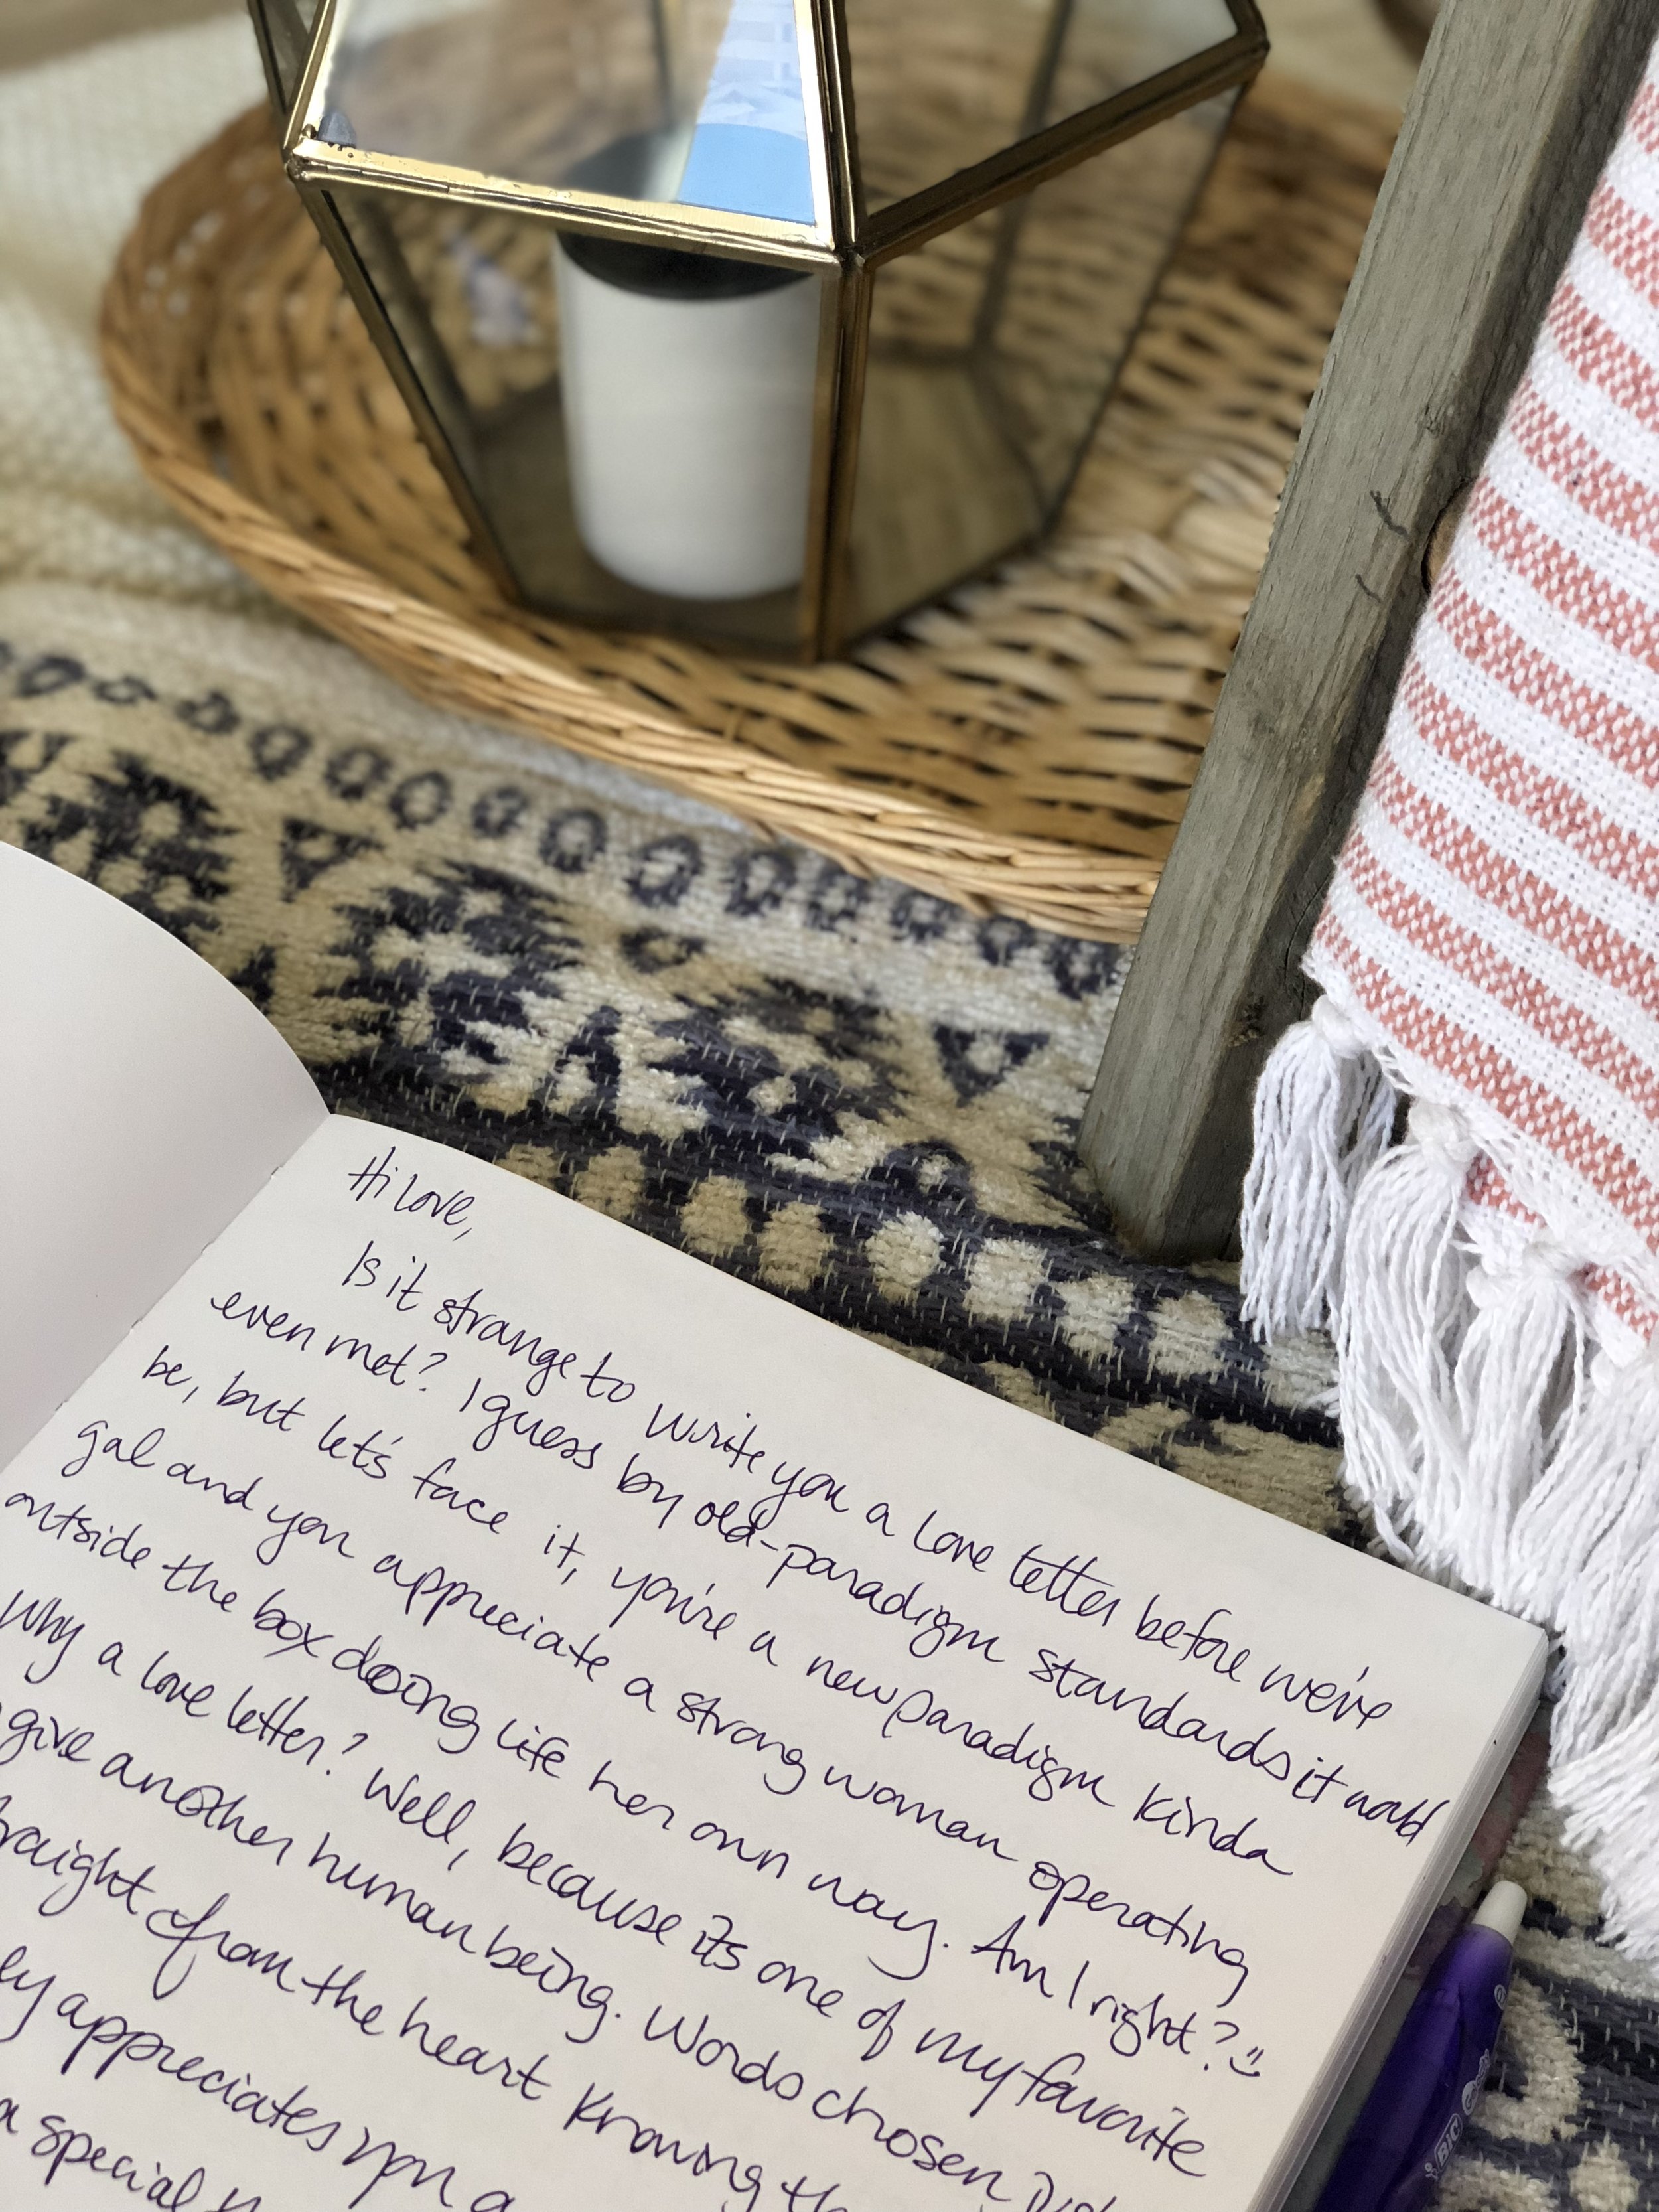 Hi Love,
Is it strange to write you a love letter before we've
even met? I guess by old-paradigm standards it would
be, but let's face it, you're a new paradigm kinda
gal and you appreciate a strong woman operating
outside the box doing life her own way. Am I right? :)
Why a love letter? Well, because its one of my favorite
give another human being. Words chosen
straight from the heart knowing
appreciates you
a special
BIC